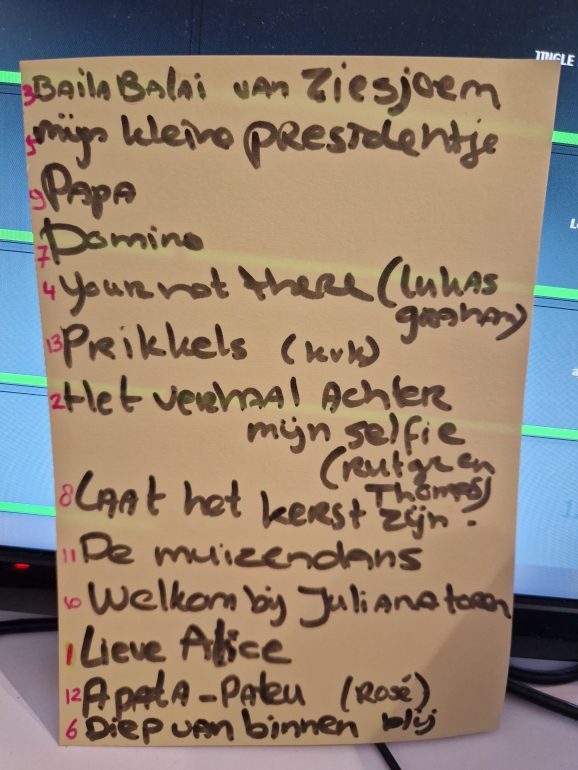 JINGLE
3 Baila Balai van Ziesjoem
5 mijn kleine presidentje
9 Papa
7 Domino
4 Your not there (Lukas
graham)
13 Prikkels (kvk)
2 Het verhaal achter
mijn selfie
(Rutger en
Thomas)
8 Laat het kerst zijn.
11 De muizendans
10 Welkom bij Julianatoren
1 Lieve Alice
12 Apata-Pateu (Rosé)
6 Diep van binnen blij